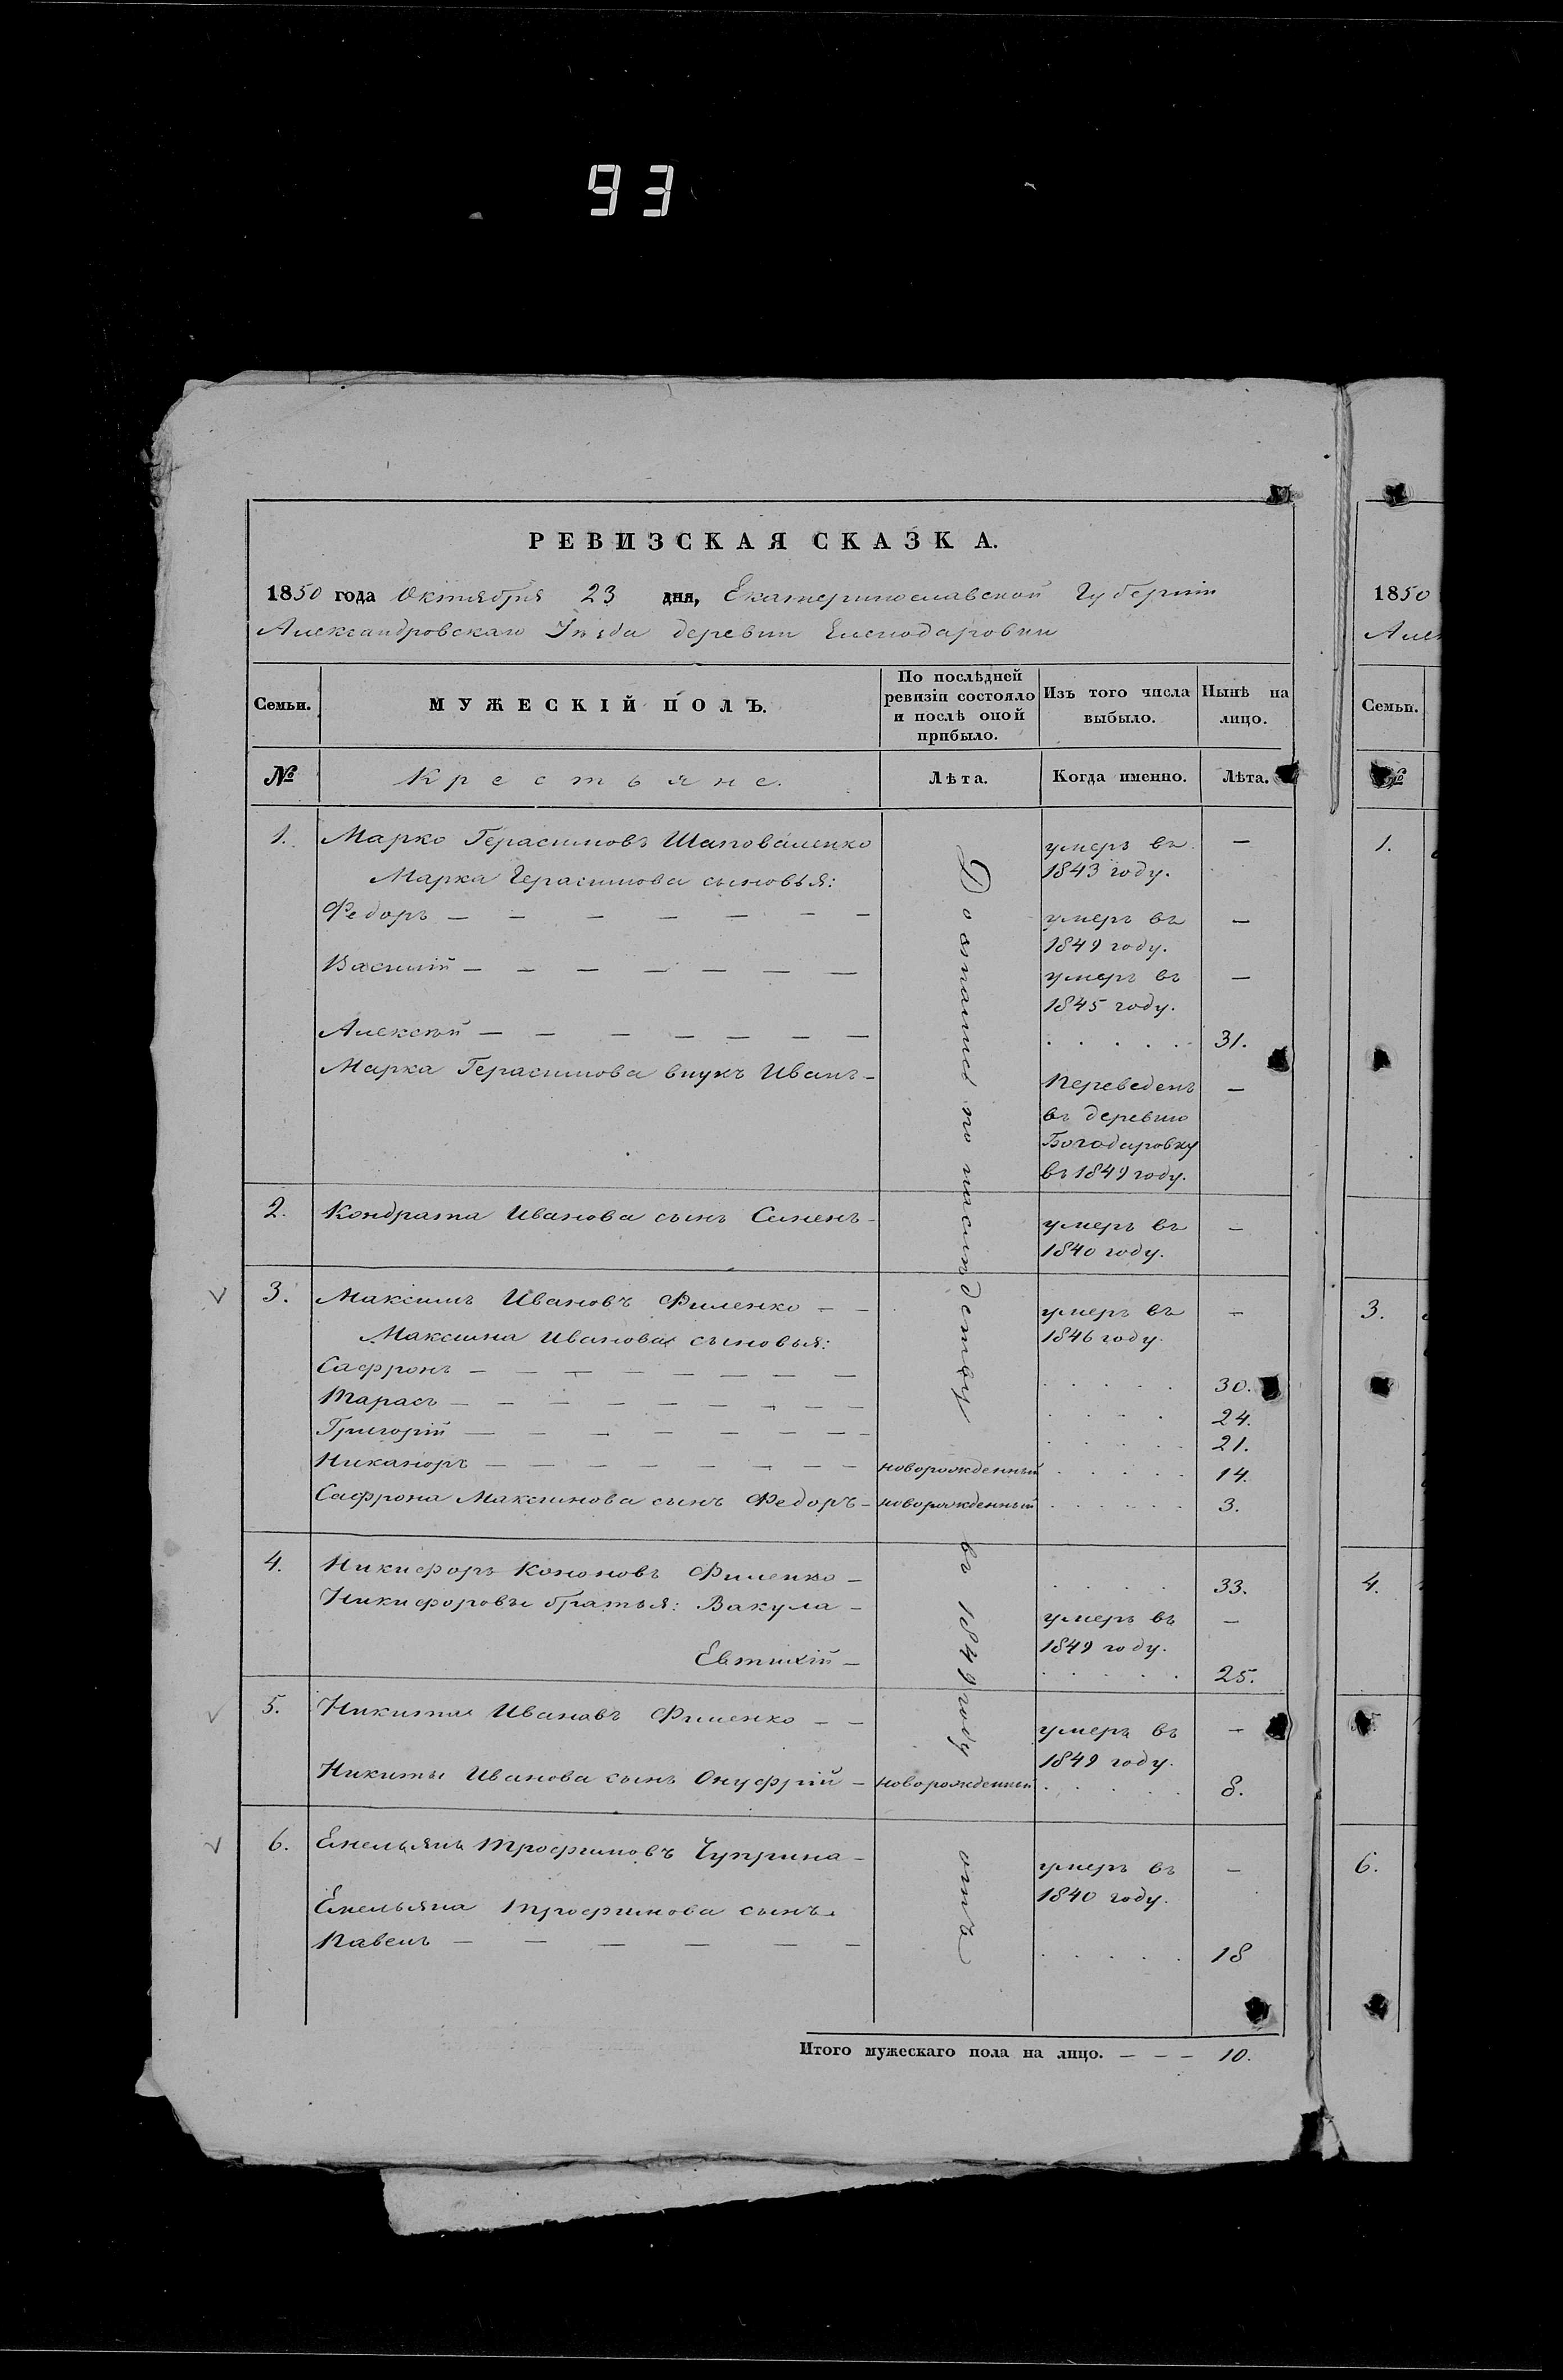 93
РЕВИЗСКАЯ СКАЗКА.
1850 года Октября 23 дня, Екатеринославской Губерніи
Александровскаго Уѣзда деревни
Семьи. МУЖЕСКІЙ ПОЛЪ. По послѣдней ревизіи состояло и послѣ оной прибыло. Изъ того числа выбыло. Нынѣ на лицо.
№ Крестьяне. Лѣта. Когда именно. Лѣта.
1. Марко Герасимовъ Шаповаленко умеръ въ —
1843 году.
Марка Герасимова сыновья:
Федоръ — — — — — — — умеръ въ —
1849 году.
Василій — — — — — — — умеръ въ —
1845 году.
Алексѣй — — — — — — — . . . . . 31.
Марка Герасимова внукъ Иванъ — Переведенъ —
въ деревню
Богодаровку
въ 1849 году.
2. Кондрата Иванова сынъ Семенъ — умеръ въ —
1840 году.
3. Максимъ Ивановъ Филенко — — умеръ въ —
1846 году.
Максима Иванова сыновья:
Сафронъ — — — — — — — — . . . . . 30.
Тарасъ — — — — — — — — . . . . 24.
Григорій — — — — — — — — . . . . . 21.
Никаноръ — — — — — — — новорожденный . . . . . 14.
Сафрона Максимова сынъ Федоръ — новорожденный . . . . . . 3.
4. Никифоръ Кононовъ Филенко — . . . . 33.
Никифоровы братья: Вакула — умеръ въ —
1849 году.
Евтихій — . . . . . 25.
5. Никита Ивановъ Филенко — — умеръ въ —
1849 году.
Никиты Иванова сынъ Онуфрій — новорожденный . . . . . 8.
6. Емельянъ Трофимовъ Чуприна — умеръ въ —
1840 году.
Емельяна Трофимова сынъ
Павелъ — — — — — — . . . . . 18
по наслѣдству въ 1849 году
Итого мужескаго пола на лицо. — — — 10.
1850
Семьи.
№
1.
3.
4.
6.